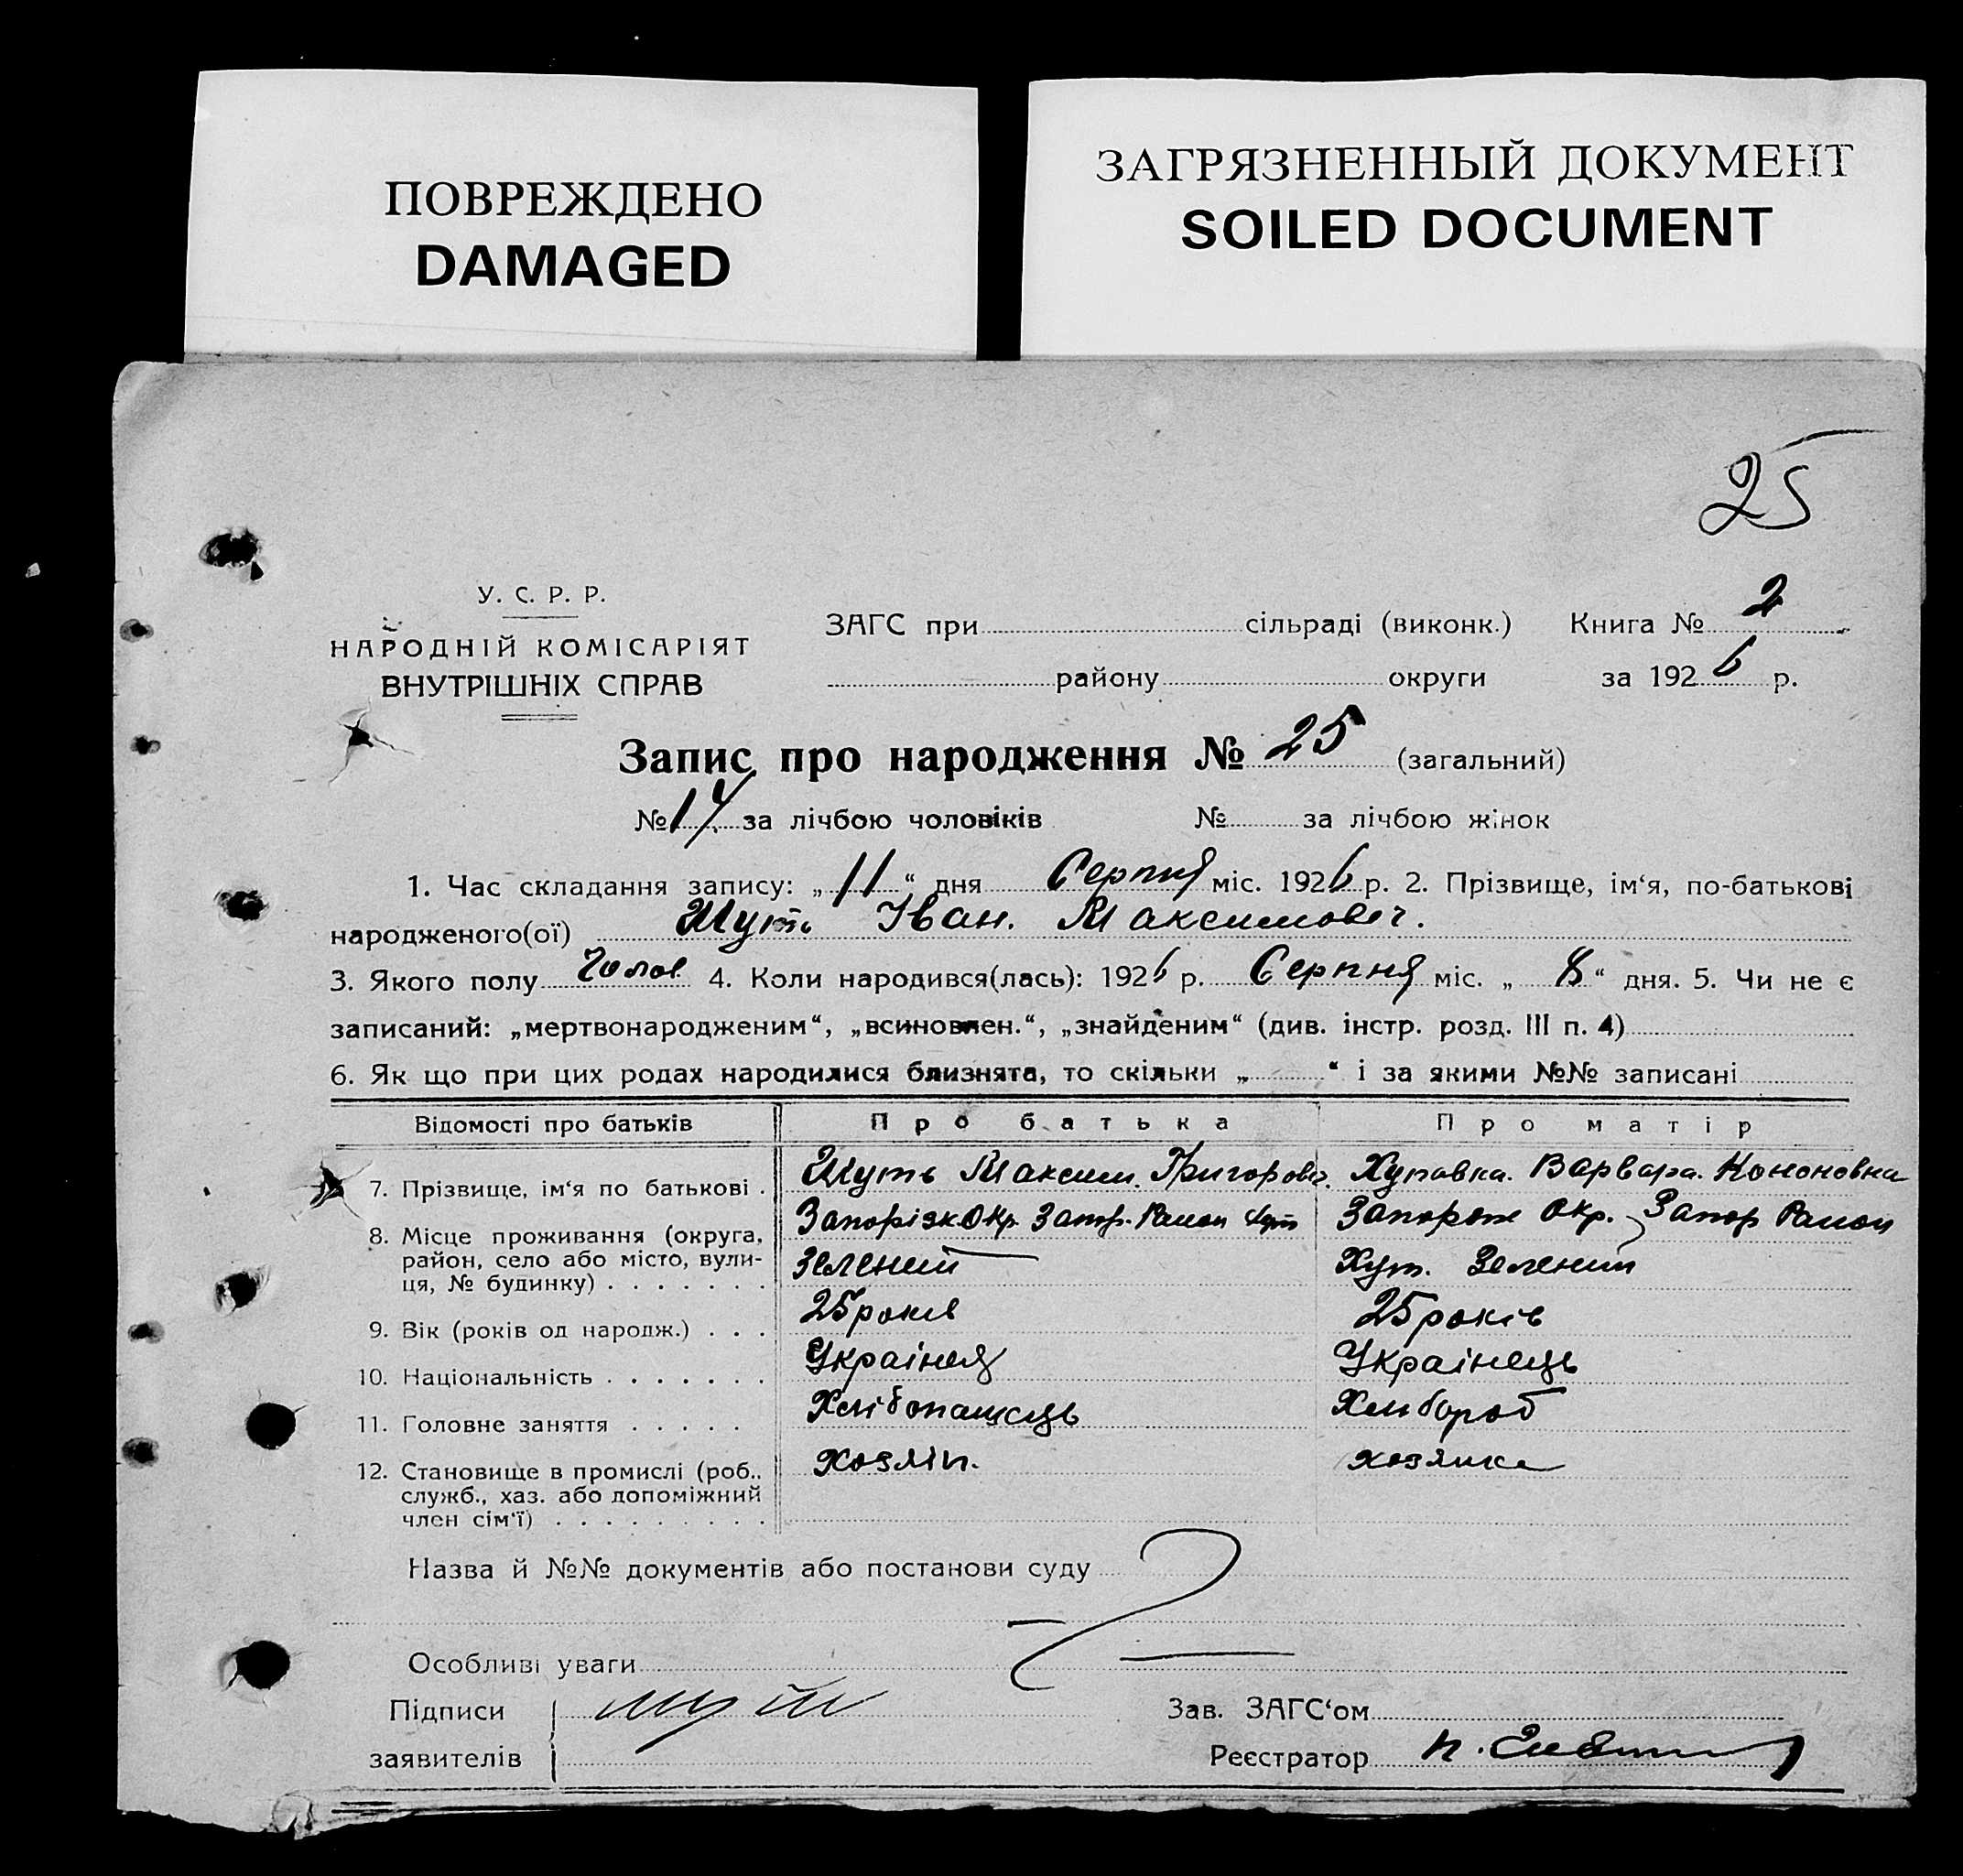 ПОВРЕЖДЕНО
DAMAGED
ЗАГРЯЗНЕННЫЙ ДОКУМЕНТ
SOILED DOCUMENT
25
У. С. Р. Р.
НАРОДНІЙ КОМІСАРІЯТ
ВНУТРІШНІХ СПРАВ
ЗАГС при сільраді (виконк.) Книга № 2
району округи за 1926 р.
Запис про народження № 25 (загальний)
№ 14 за лічбою чоловіків № за лічбою жінок
1. Час складання запису: „11“ дня Серпня міс. 1926 р. 2. Прізвище, ім‘я, по-батькові
народженого(ої) Шуть Іван. Максимович.
3. Якого полу Чолов. 4. Коли народився(лась): 1926 р. Серпня міс. „8“ дня. 5. Чи не є
записаний: „мертвонародженим“, „всиновлен.“, „знайденим“ (див. інстр. розд. III п. 4)
6. Як що при цих родах народилися близнята, то скільки „ “ і за якими №№ записані
Відомості про батьків Про батька Про матір
7. Прізвище, ім‘я по батькові . Шуть Максим. Григоров. Хуповка. Варвара. Кононовна
8. Місце проживання (округа, Запорізк. Окр. Запор. Район хут Запорож Окр. Запор Район
район, село або місто, вули- Зелений Хут. Зелений
ця, № будинку) . . . . . . .
9. Вік (років од народж.) . . . 25 років 25 років
10. Національність . . . . . . . Українец Українець
11. Головне заняття . . . . . Хлібопашець Хлибороб
12. Становище в промислі (роб.. хозяін. хозяика
служб., хаз. або допоміжний
член сім‘ї) . . . . . . . . .
Назва й №№ документів або постанови суду
Особливі уваги
Підписи Шуть Зав. ЗАГС‘ом
заявителів Реєстратор